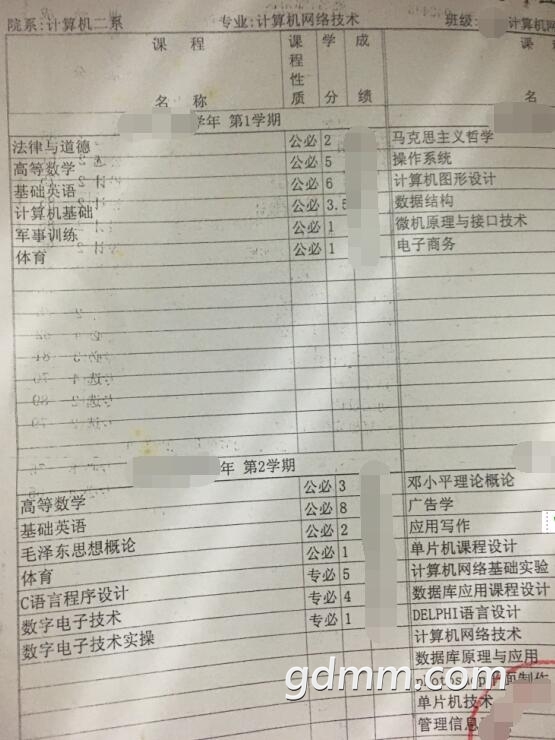 院系:计算机二系 专业:计算机网络技术 班级: 计算机网
课 程 名 称 课程性质 学分 成绩 名
学年 第1学期
法律与道德 公必 2 马克思主义哲学
高等数学 公必 5 操作系统
基础英语 公必 6 计算机图形设计
计算机基础 公必 3.5 数据结构
军事训练 公必 1 微机原理与接口技术
体育 公必 1 电子商务
年 第2学期
高等数学 公必 3 邓小平理论概论
基础英语 公必 8 广告学
毛泽东思想概论 公必 2 应用写作
体育 公必 1 单片机课程设计
C语言程序设计 专必 5 计算机网络基础实验
数字电子技术 专必 4 数据库应用课程设计
数字电子技术实操 专必 1 DELPHI语言设计
计算机网络技术
数据库原理与应用
制作
单片机技术
管理信息
gdmm.com